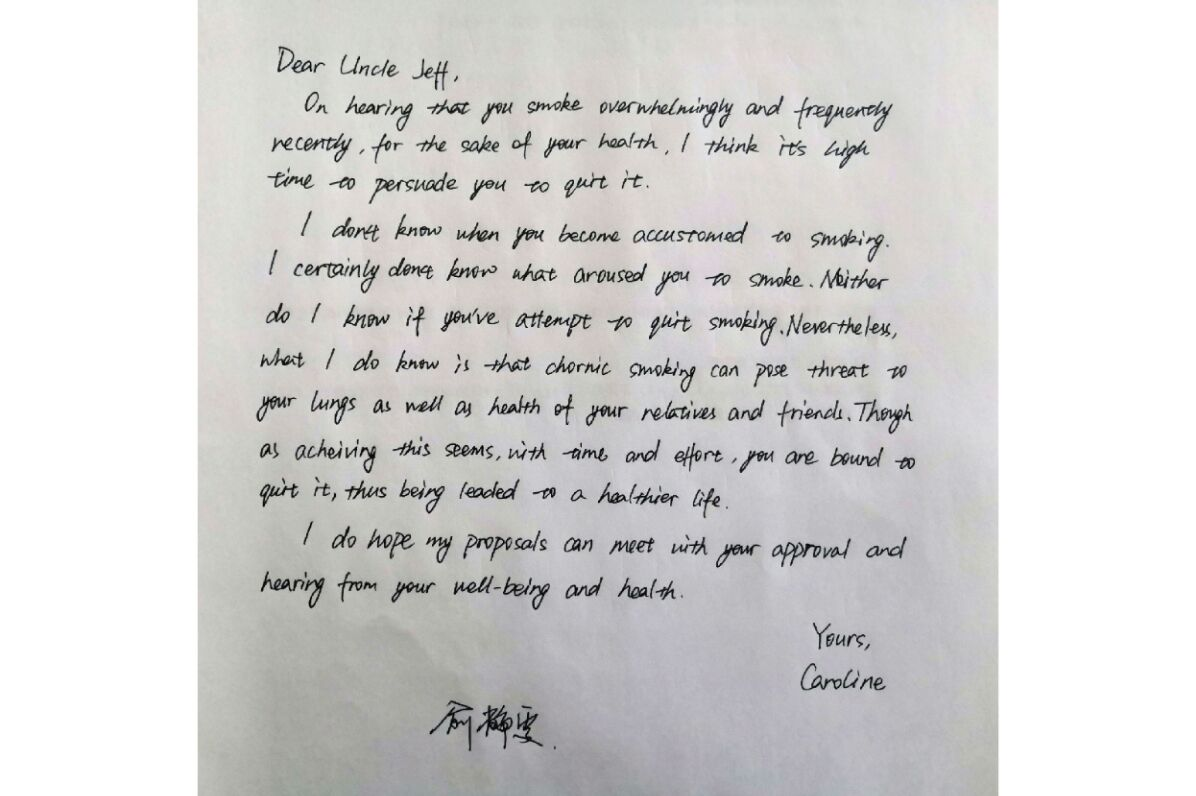 Dear Uncle Jeff,
On hearing that you smoke overwhelmingly and frequently
recently, for the sake of your health, I think it's high
time to persuade you to quit it.
I don't know when you become accustomed to smoking.
I certainly don't know what aroused you to smoke. Neither
do I know if you've attempt to quit smoking. Nevertheless,
what I do know is that chornic smoking can pose threat to
your lungs as well as health of your relatives and friends. Though
as acheiving this seems, with time and effort, you are bound to
quit it, thus being leaded to a healthier life.
I do hope my proposals can meet with your approval and
hearing from your well-being and health.
Yours,
Caroline
俞静雯